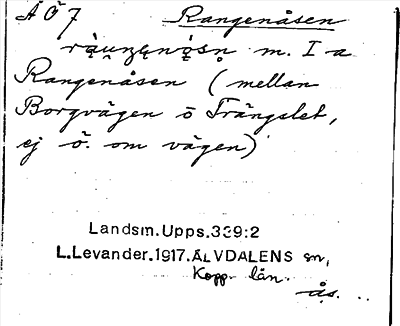 ÄÖ 7 Rangenåsen
m. I a
Rangenåsen (mellan
Borgvägen ō Trängslet,
ej ö. om vägen)
Landsm.Upps.339:2
L.Levander.1917.ÄLVDALENS sn,
Kopp. län.
ås.